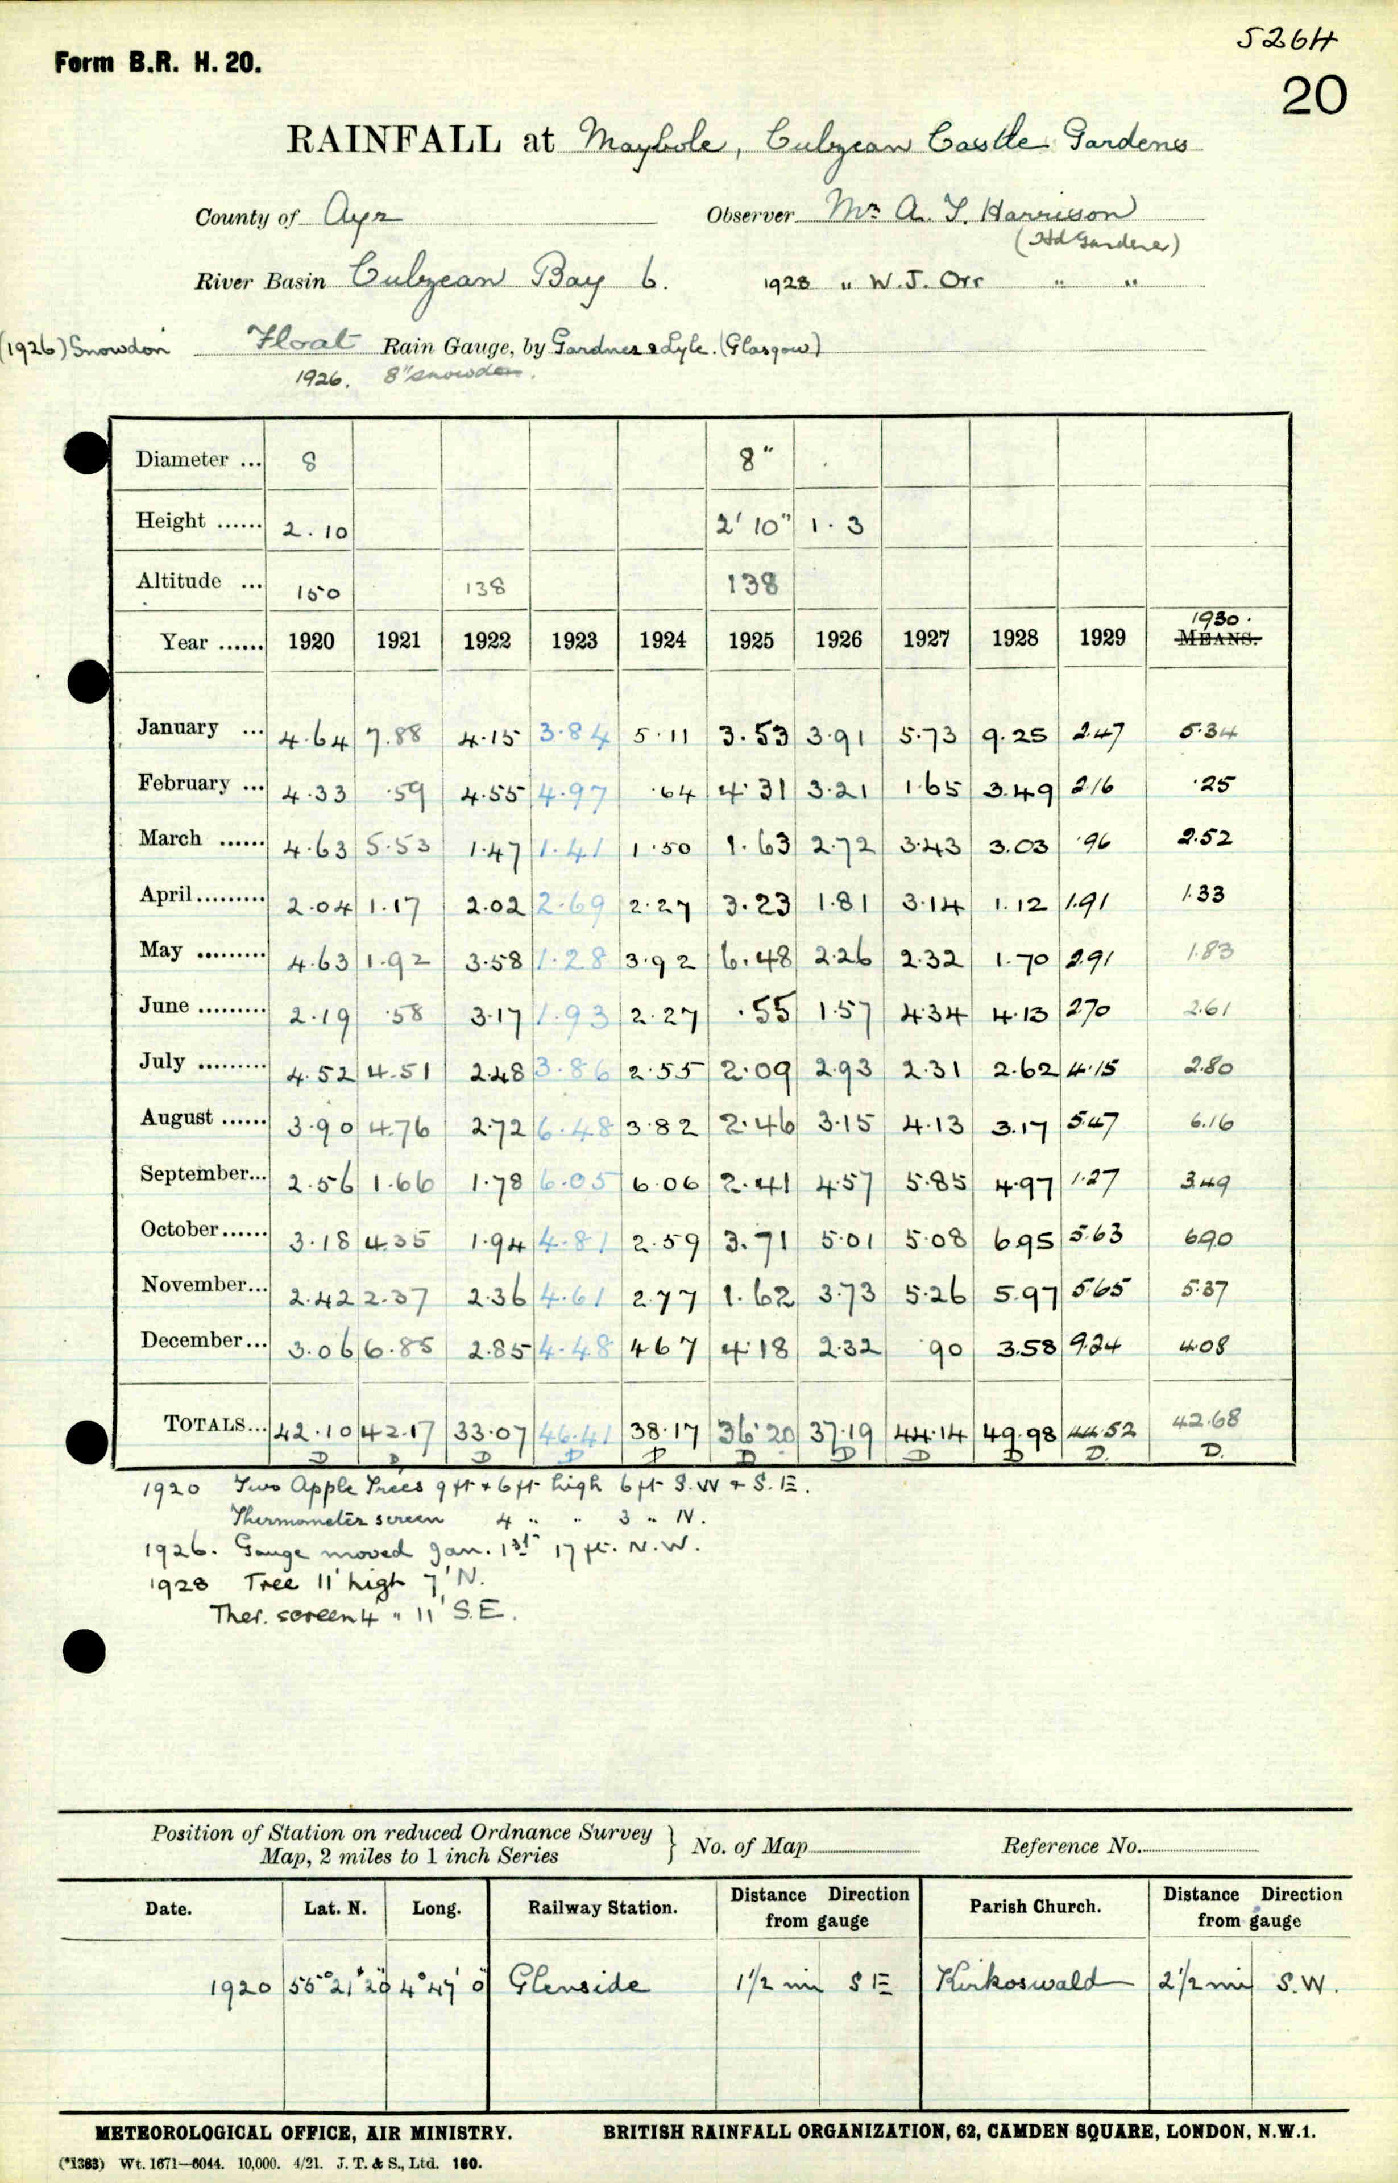 5264
Form B.R. H. 20.
20
RAINFALL at Maybole, Culzean Castle Gardens
County of Ayr Observer Mr. A. T. Harrison
(Hd Gardener)
River Basin Culzean Bay 6. 1928 " W. J. Orr " "
(1926) Snowdon Float Rain Gauge, by Gardner & Lyle. (Glasgow)
1926. 8" Snowdon.
Diameter ... 8 8"
Height ...... 2.10 2' 10" 1.3
Altitude ... 150 138 138
Year ...... 1920 1921 1922 1923 1924 1925 1926 1927 1928 1929 1930. MEANS.
January ... 4.64 7.88 4.15 3.84 5.11 3.53 3.91 5.73 9.25 2.47 5.34
February ... 4.33 .59 4.55 4.97 .64 4.31 3.21 1.65 3.49 2.16 .25
March ...... 4.63 5.53 1.47 1.41 1.50 1.63 2.72 3.43 3.03 .96 2.52
April......... 2.04 1.17 2.02 2.69 2.27 3.23 1.81 3.14 1.12 1.91 1.33
May ......... 4.63 1.92 3.58 1.28 3.92 6.48 2.26 2.32 1.70 2.91 1.83
June ......... 2.19 .58 3.17 1.93 2.27 .55 1.57 4.34 4.13 2.70 2.61
July ......... 4.52 4.51 2.48 3.86 2.55 2.09 2.93 2.31 2.62 4.15 2.80
August ...... 3.90 4.76 2.72 6.48 3.82 2.46 3.15 4.13 3.17 5.47 6.16
September... 2.56 1.66 1.78 6.05 6.06 2.41 4.57 5.85 4.97 1.27 3.49
October...... 3.18 4.35 1.94 4.81 2.59 3.71 5.01 5.08 6.95 5.63 6.90
November... 2.42 2.37 2.36 4.61 2.77 1.62 3.73 5.26 5.97 5.65 5.37
December... 3.06 6.85 2.85 4.48 4.67 4.18 2.32 .90 3.58 9.24 4.08
TOTALS... 42.10 42.17 33.07 46.41 38.17 36.20 37.19 44.14 49.98 44.52 42.68
D D D D D D D D D D. D.
1920 Two Apple Trees 9 ft & 6 ft high 6 ft S.W & S.E.
Thermometer screen 4 " " 3 " N.
1926. Gauge moved Jan. 1st 17 ft. N.W.
1928 Tree 11' high 7' N.
Ther. screen 4' " 11' S.E.
Position of Station on reduced Ordnance Survey
Map, 2 miles to 1 inch Series } No. of Map Reference No.
Date. Lat. N. Long. Railway Station. Distance Direction from gauge Parish Church. Distance Direction from gauge
1920 55° 21' 20" 4° 47' 0" Glenside 1 1/2 mi S E Kirkoswald 2 1/2 mi S.W.
METEOROLOGICAL OFFICE, AIR MINISTRY. BRITISH RAINFALL ORGANIZATION, 62, CAMDEN SQUARE, LONDON, N.W.1.
(*1383) Wt. 1671—6044. 10,000. 4/21. J. T. & S., Ltd. 160.